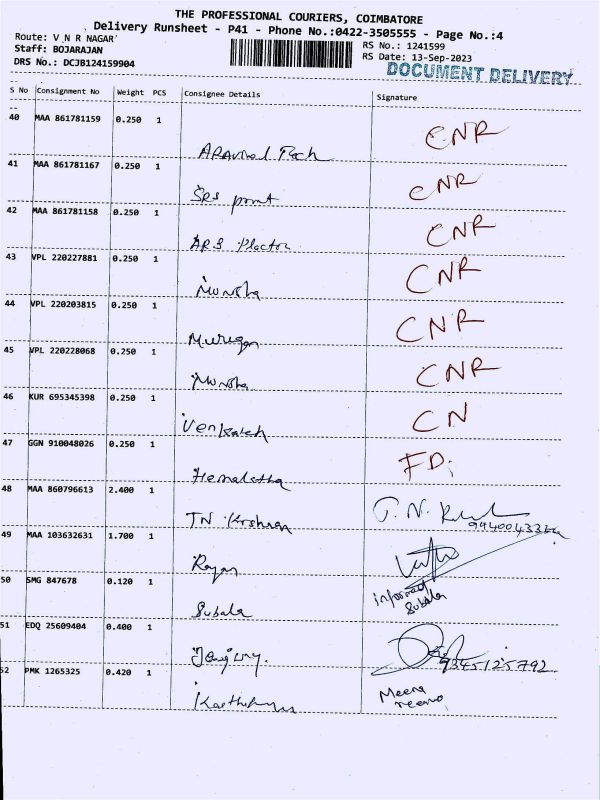 THE PROFESSIONAL COURIERS, COIMBATORE
Delivery Runsheet - P41 - Phone No.:0422-3505555 - Page No.:4
Route: V N R NAGAR
Staff: BOJARAJAN
DRS No.: DCJB124159904
RS No.: 1241599
RS Date: 13-Sep-2023
DOCUMENT DELIVERY
S No Consignment No Weight PCS Consignee Details Signature
40 MAA 861781159 0.250 1 CNR
Aravind Tech
41 MAA 861781167 0.250 1 CNR
SRS print
42 MAA 861781158 0.250 1 CNR
ARS
43 VPL 220227881 0.250 1 CNR
44 VPL 220203815 0.250 1 CNR
Murugan
45 VPL 220228068 0.250 1 CNR
46 KUR 695345398 0.250 1 CN
Venkatesh
47 GGN 910048026 0.250 1 FD;
Hemalatha
48 MAA 860796613 2.400 1
TN Krishnan
49 MAA 103632631 1.700 1
Rajan
50 SMG 847678 0.120 1 informed
Subala Subala
51 EDQ 25609404 0.400 1 9345125792
52 PMK 1265325 0.420 1 Meena